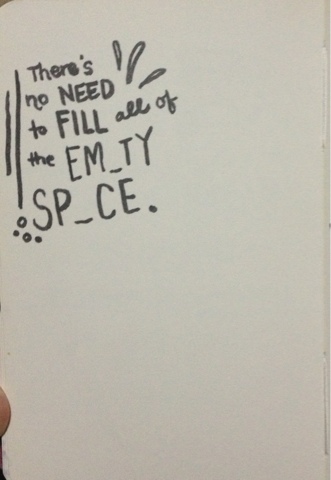 There's
no NEED
to FILL all of
the EM_TY
SP_CE.